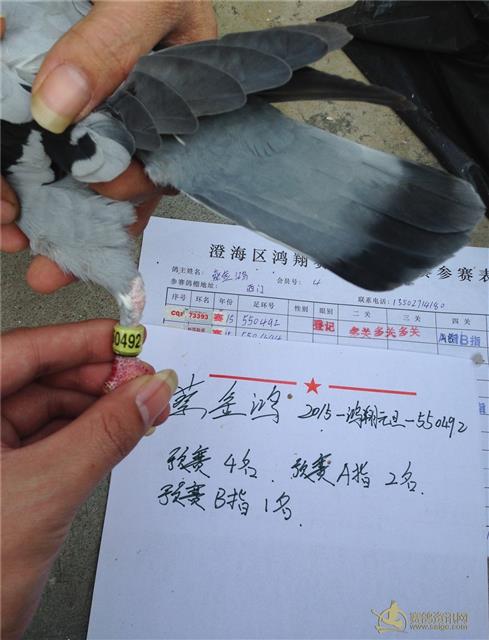 澄海区鸿翔赛
参赛表
鸽主姓名: 蔡金鸿 会员号: 4
参赛鸽棚地址: 西门 联系电话: 13502714180
序号 环名 年份 足环号 性别 眼别 二关 三关 四关
73393 赛 15 550492 登记 多关多关 A指B指
00492
蔡金鸿 2015-鸿翔元旦-550492
预赛 4名. 预赛A指 2名.
预赛B指 1名.
赛鸽资讯网
www.saige.com